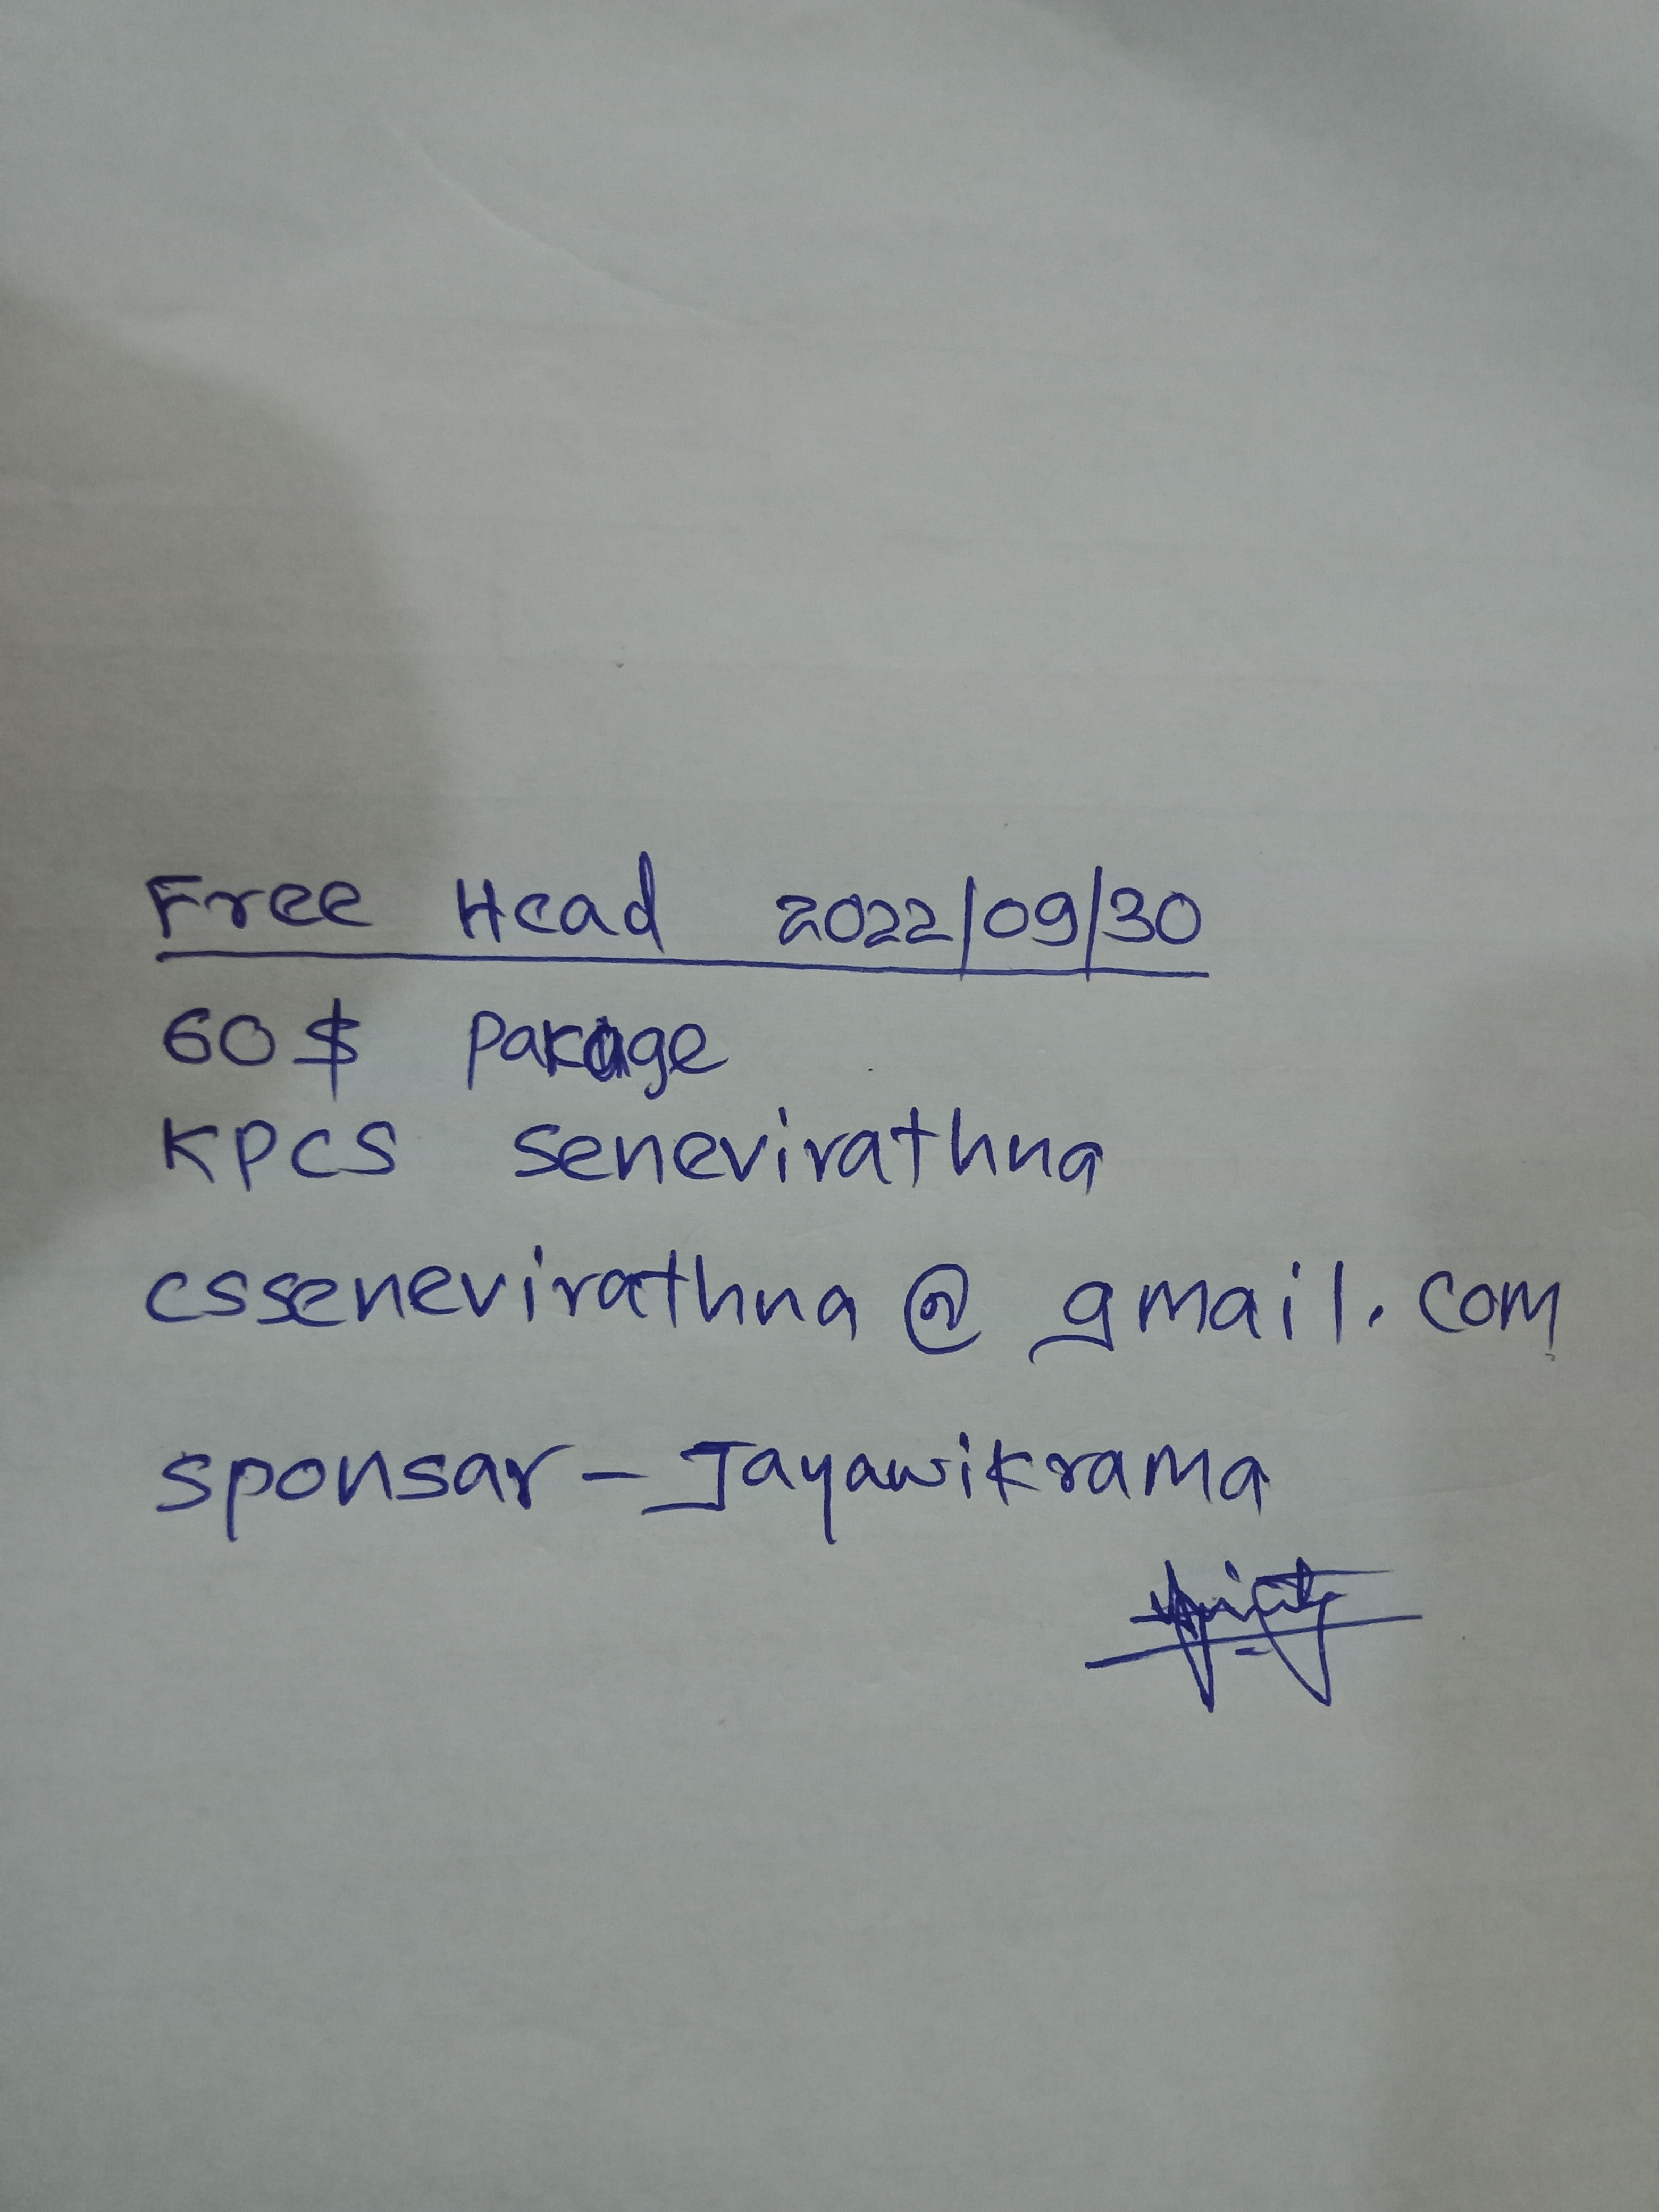 Free Head 2022/09/30
60$ Pakage
KPCS Senevirathna
cssenevirathna@gmail.com
Sponsar - Jayawikrama